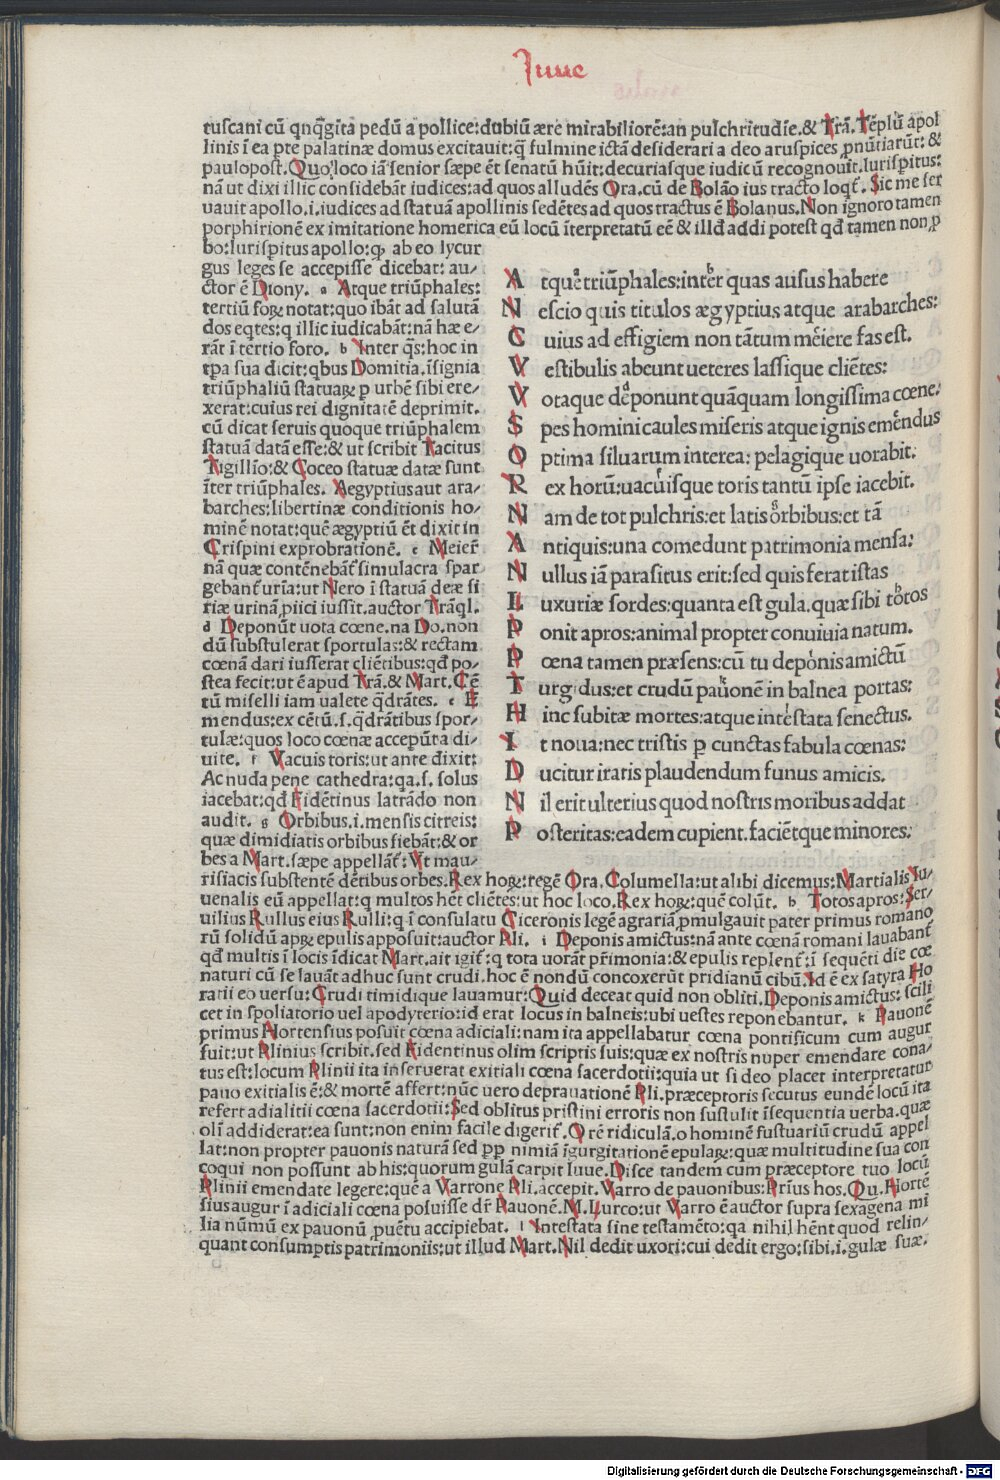 Juue
tuscani cū qnq̄gīta pedū a pollice:dubiū ære mirabiliorē:an pulchritudīe.& Trā.Tēplū apol
linis ī ea pte palatinæ domus excitauit:q̄ fulmine ictā desiderari a deo aruspices pnūtiarūt:&
paulopost.Quo loco iā senior sæpe ēt senatū hūit:decuriasque iudicū recognouit.Iurispitus:
nā ut dixi illic considebāt iudices:ad quos alludēs Ora.cū de Bolāo ius tracto loqt̄. Sic me ser
uauit apollo.i.iudices ad statuā apollinis sedētes ad quos tractus ē Bolanus.Non ignoro tamen
porphirionē ex imitatione homerica eū locū īterpretatū eē & illd̄ addi potest qd̄ tamen non p
bo:Iurispitus apollo:qp ab eo lycur
gus leges se accepisse dicebat: au/
ctor ē Diony. a Atque triūphales:
tertiū foꝝ notat:quo ibāt ad salutā
dos eqtes:q illic iudicabāt:nā hæ e/
rāt ī tertio foro. b Inter q̄s:hoc in
tpa sua dicit:qbus Domitia.īsignia
triūphaliū statuaꝝ p urbē sibi ere/
xerat:cuius rei dignitatē deprimit.
cū dicat seruis quoque triūphalem
statuā datā esse:& ut scribit Tacitus
Tigillīo:& Coceo statuæ datæ sunt
īter triūphales. Aegyptius aut ara/
barches:libertinæ conditionis ho/
minē notat:quē ægyptiū ēt dixit in
Crispini exprobrationē. c Meier̄
nā quæ contēnebāt̄ simulacra spar
gebant̄ urīa:ut Nero ī statuā deæ si
riæ urinā piici iussit.auctor Trāql.
d Deponūt uota cœne.na Do.non
dū substulerat sportulas:& rectam
cœnā dari iusserat cliētibus:qd̄ po/
stea fecit:ut ē apud Trā.& Mart.Cē
tū miselli iam ualete q̄drātes. e E
mendus:ex cētū.s.q̄drātibus spor/
tulæ:quos loco cœnæ accepūt a di/
uite. f Vacuis toris:ut ante dixit:
Ac nuda pene cathedra:qa.s.solus
iacebat:qd̄ Fidētinus latrādo non
audit. g Orbibus.i.mensis citreis:
quæ dimidiatis orbibus fiebāt:& or
bes a Mart.sæpe appellāt̄: Vt mau/
risiacis substentē dētibus orbes.Rex hoꝝ:regē Ora.Columella:ut alibi dicemus:Martialis Iu/
uenalis eū appellat:q multos hēt cliētes:ut hoc loco.Rex hoꝝ:quē colūt. h Totos apros:Ser/
uilius Rullus eius Rulli:q ī consulatu Ciceronis legē agrariā pmulgauit pater primus romano
rū solidū apꝝ epulis apposuit:auctor Pli. i Deponis amictus:nā ante cœnā romani lauabant̄
qd̄ multis ī locis īdicat Mart.ait igit̄:q tota uorāt prīmonia:& epulis replent̄:ī sequēti die cœ
naturi cū se lauāt adhuc sunt crudi.hoc ē nondū concoxerūt pridianū cibū.Id ē ex satyra Ho
ratii eo uersu:Crudi timidique lauamur:Quid deceat quid non obliti.Deponis amictus: scili
cet in spoliatorio uel apodyterio:id erat locus in balneis:ubi uestes reponebantur. k Pauonē
primus Hortensius posuit cœna adiciali:nam ita appellabatur cœna pontificum cum augur
fuit:ut Plinius scribit.sed Fidentinus olim scriptis suis:quæ ex nostris nuper emendare cona/
tus est:locum Plinii ita inseruerat exitiali cœna sacerdotii:quia ut si deo placet interpretatur
pauo exitialis ē:& mortē affert:nūc uero deprauationē Pli.præceptoris secutus eundē locū ita
refert adialitii cœna sacerdotii:Sed oblitus pristini erroris non sustulit īsequentia uerba.quæ
olī addiderat:ea sunt:non enim facile digerit̄.O rē ridiculā.o hominē fustuariū crudū appel
lat:non propter pauonis naturā sed pp nimiā īgurgitationē epulaꝝ:quæ multitudine sua con
coqui non possunt ab his:quorum gulā carpit Iuue.Disce tandem cum præceptore tuo locū
Plinii emendate legere:quē a Varrone Pli.accepit.Varro de pauonibus:Prīus hos.Qu.Hortē
sius augur ī adiciali cœna posuisse dr̄ Pauonē.M.Lurco:ut Varro ē auctor supra sexagena mi
lia nūmū ex pauonū puētu accipiebat. l Intestata sine testamēto:qa nihil hēnt quod relin/
quant consumptis patrimoniis:ut illud Mart.Nil dedit uxori:cui dedit ergo:sibi.i.gulæ suæ.
A tque triūphales:inter quas ausus habere
N escio quis titulos ægyptius atque arabarches:
C uius ad effigiem non tātum meiere fas est.
V estibulis abeunt ueteres lassique cliētes:
V otaque deponunt quāquam longissima cœne:
S pes homini caules miseris atque ignis emēdus
O ptima siluarum interea: pelagique uorabit.
R ex horū:uacuisque toris tantū ipse iacebit.
N am de tot pulchris:et latis orbibus:et tā
A ntiquis:una comedunt patrimonia mensa:
N ullus iā parasitus erit:sed quis ferat istas
L uxuriæ sordes:quanta est gula.quæ sibi totos
P onit apros:animal propter conuiuia natum.
P œna tamen præsens:cū tu deponis amictū
T urgidus:et crudū pauonē in balnea portas:
H inc subitæ mortes:atque intestata senectus.
I t noua:nec tristis p cunctas fabula cœnas:
D ucitur iratis plaudendum funus amicis.
N il erit ulterius quod nostris moribus addat
P osteritas:eadem cupient.faciētque minores:
Digitalisierung gefördert durch die Deutsche Forschungsgemeinschaft - DFG